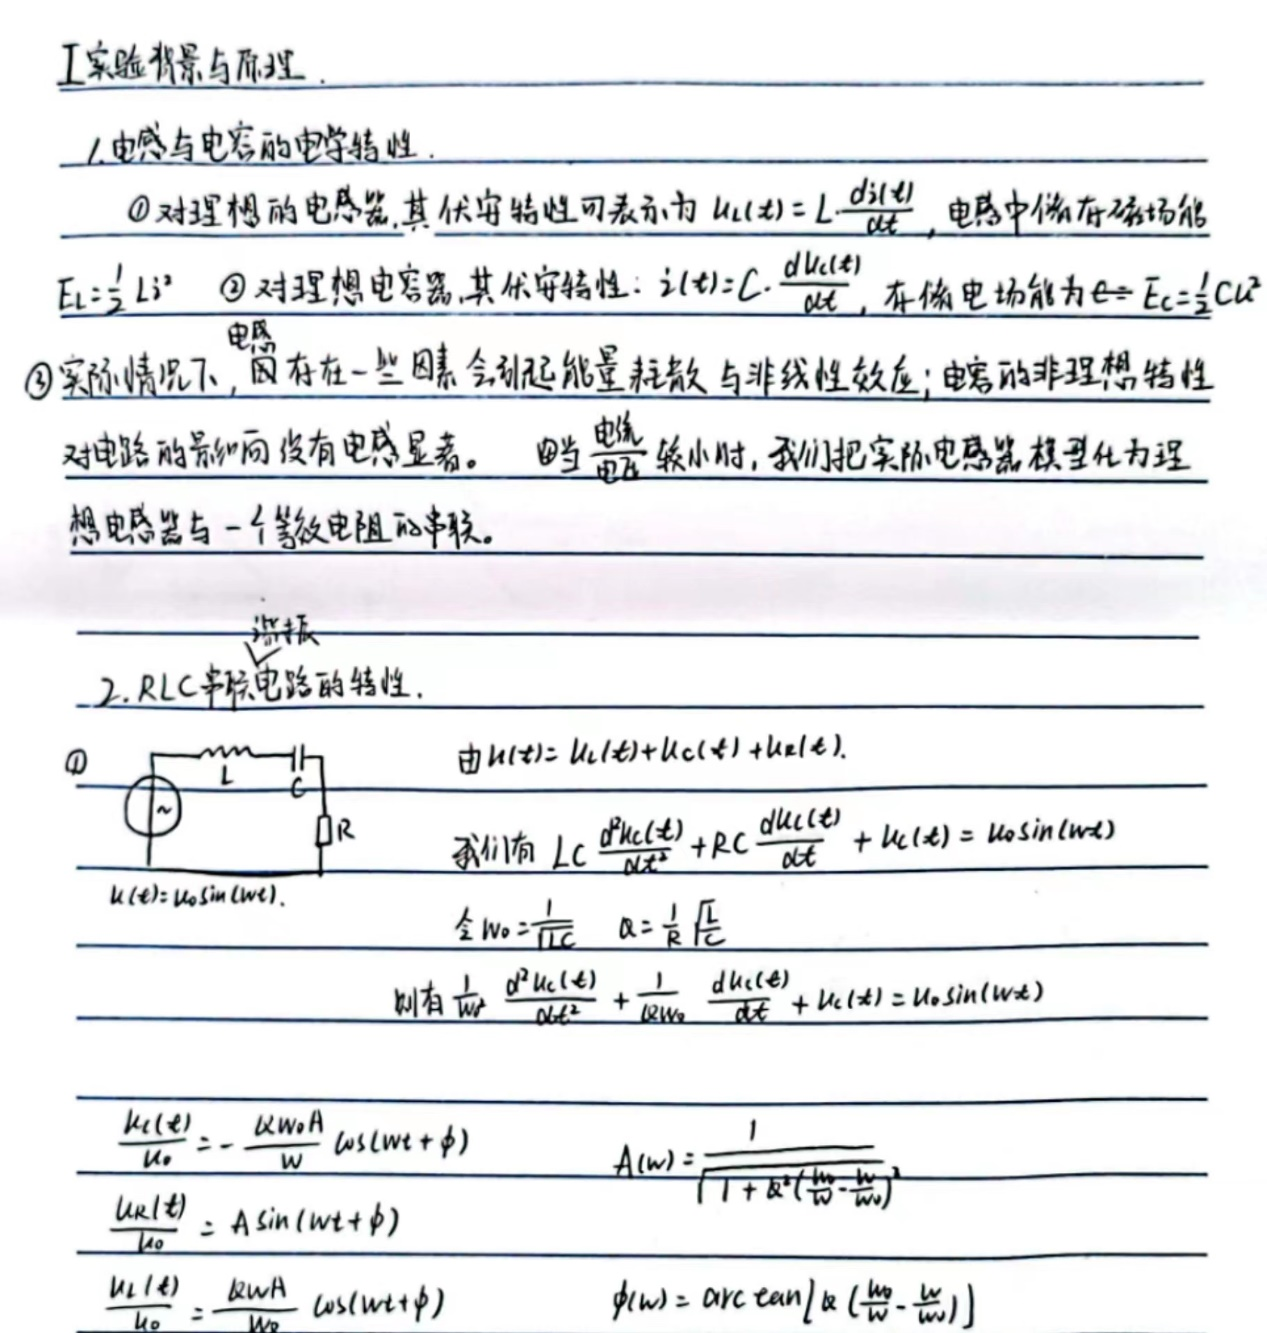 I 实验背景与原理.
1.电感与电容的电学特性.
①对理想的电感器,其伏安特性可表示为 u_L(t)=L·di(t)/dt,电感中储存磁场能
E_L=1/2 Li² ②对理想电容器,其伏安特性: i(t)=C·du_c(t)/dt,存储电场能为 E_c=1/2 Cu²
电感
③实际情况下,因存在一些因素会引起能量耗散与非线性效应;电容的非理想特性
对电路的影响没有电感显著。 ④当电流/电压较小时,我们把实际电感器模型化为理
想电感器与一个等效电阻的串联。
谐振
2.RLC串联电路的特性.
① L C R ~
u(t)=u₀sin(wt).
由u(t)=u_L(t)+u_c(t)+u_R(t).
我们有 LC d²u_c(t)/dt² + RC du_c(t)/dt + u_c(t) = u₀sin(wt)
令w₀=1/√LC Q=1/R √(L/C)
则有 1/w₀² d²u_c(t)/dt² + 1/Qw₀ du_c(t)/dt + u_c(t) = u₀sin(wt)
u_c(t)/u₀ = - Qw₀A/w cos(wt+φ) A(w)= 1/√(1+Q²(w₀/w - w/w₀)²)
u_R(t)/u₀ = A sin(wt+φ)
u_L(t)/u₀ = QwA/w₀ cos(wt+φ) φ(w)= arctan[Q(w₀/w - w/w₀)]